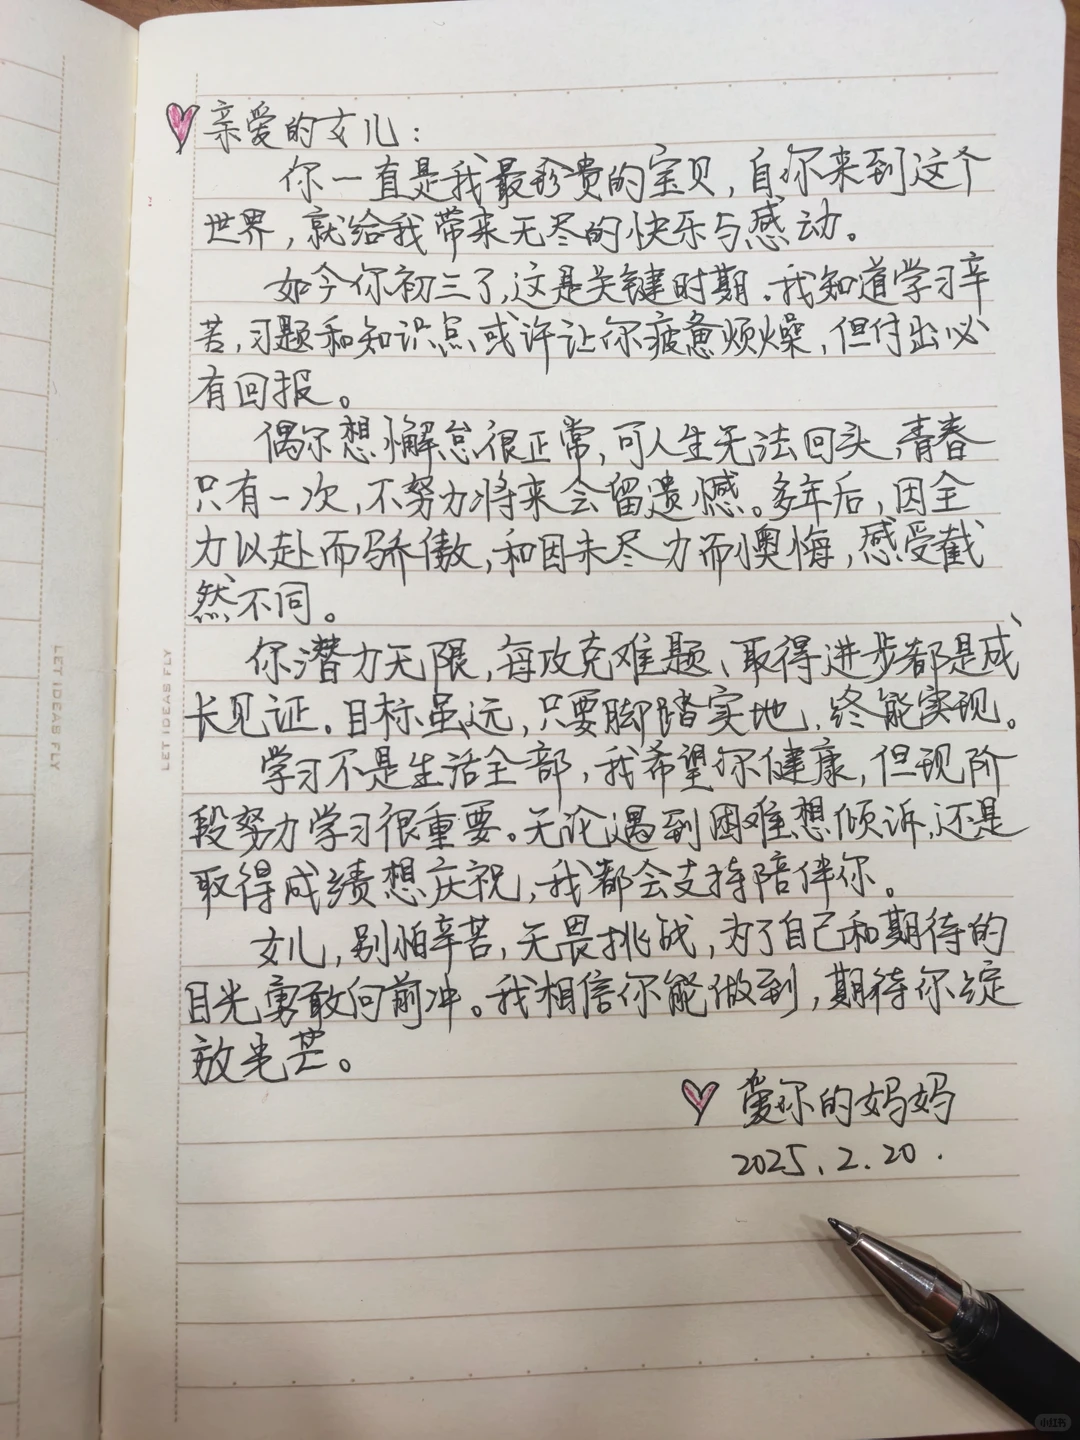 亲爱的女儿：
你一直是我最珍贵的宝贝，自你来到这个
世界，就给我带来无尽的快乐与感动。
如今你初三了，这是关键时期。我知道学习辛
苦，习题和知识点或许让你疲惫烦燥，但付出必
有回报。
偶尔想懈怠很正常，可人生无法回头，青春
只有一次，不努力将来会留遗憾。多年后，因全
力以赴而骄傲，和因未尽力而懊悔，感受截
然不同。
你潜力无限，每攻克难题、取得进步都是成
长见证。目标虽远，只要脚踏实地，终能实现。
学习不是生活全部，我希望你健康，但现阶
段努力学习很重要。无论遇到困难想倾诉，还是
取得成绩想庆祝，我都会支持陪伴你。
女儿，别怕辛苦，无畏挑战，为了自己和期待的
目光勇敢向前冲。我相信你能做到，期待你绽
放光芒。
爱你的妈妈
2025.2.20.
LET IDEAS FLY
LET IDEAS FLY
小红书